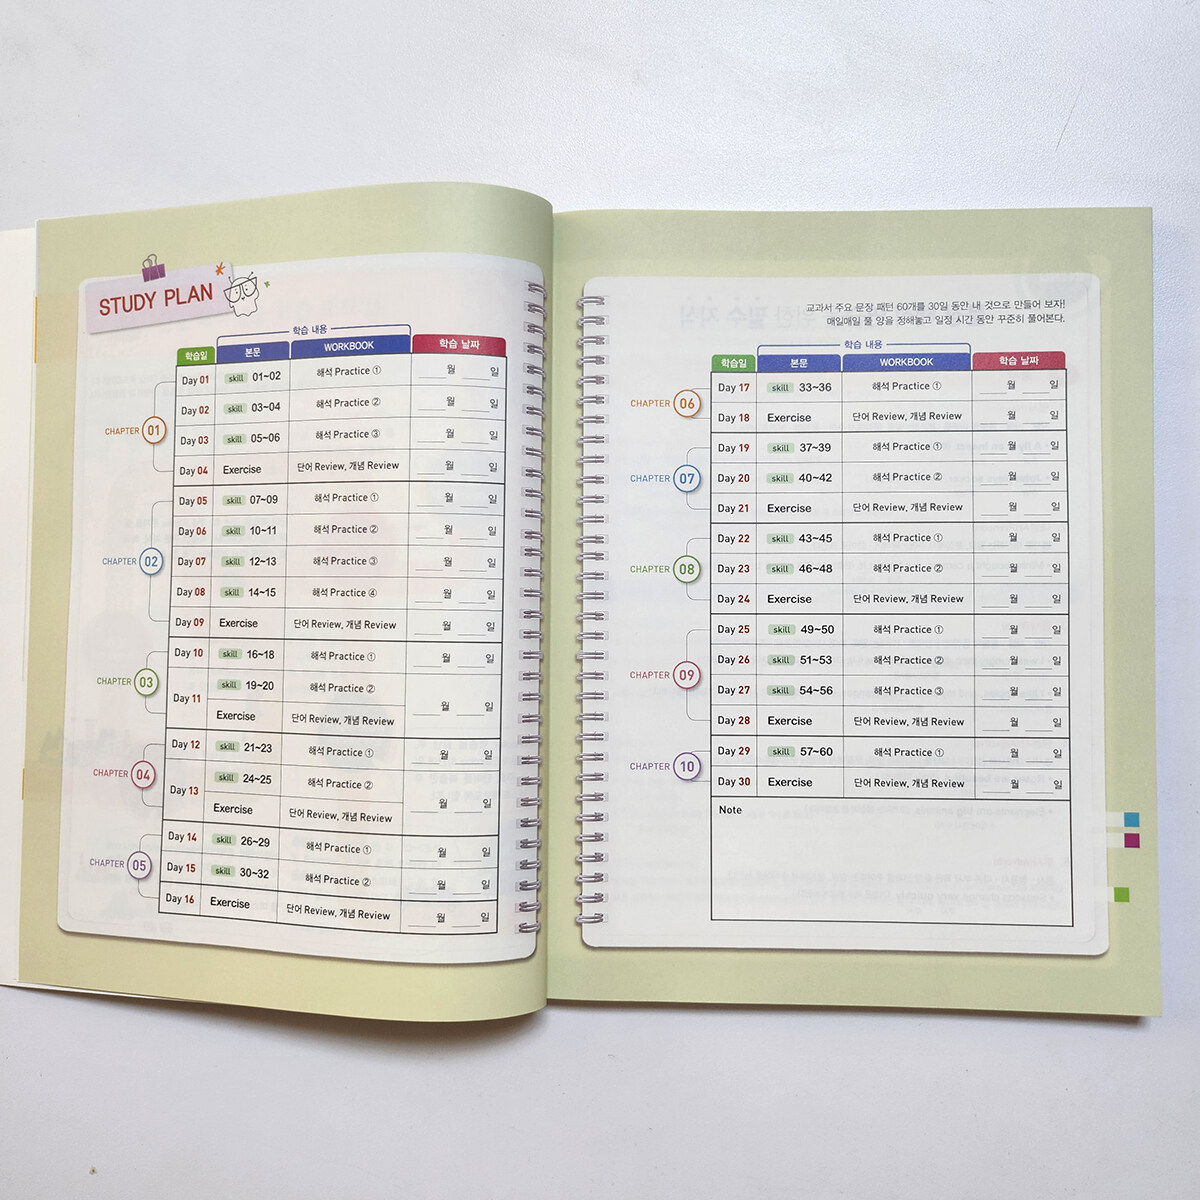 STUDY PLAN
학습 내용
학습일 본문 WORKBOOK 학습 날짜
CHAPTER 01
Day 01 skill 01~02 해석 Practice ① 월 일
Day 02 skill 03~04 해석 Practice ② 월 일
Day 03 skill 05~06 해석 Practice ③ 월 일
Day 04 Exercise 단어 Review, 개념 Review 월 일
CHAPTER 02
Day 05 skill 07~09 해석 Practice ① 월 일
Day 06 skill 10~11 해석 Practice ② 월 일
Day 07 skill 12~13 해석 Practice ③ 월 일
Day 08 skill 14~15 해석 Practice ④ 월 일
Day 09 Exercise 단어 Review, 개념 Review 월 일
CHAPTER 03
Day 10 skill 16~18 해석 Practice ① 월 일
Day 11 skill 19~20 해석 Practice ② 월 일
Exercise 단어 Review, 개념 Review
CHAPTER 04
Day 12 skill 21~23 해석 Practice ① 월 일
Day 13 skill 24~25 해석 Practice ② 월 일
Exercise 단어 Review, 개념 Review
CHAPTER 05
Day 14 skill 26~29 해석 Practice ① 월 일
Day 15 skill 30~32 해석 Practice ② 월 일
Day 16 Exercise 단어 Review, 개념 Review 월 일
교과서 주요 문장 패턴 60개를 30일 동안 내 것으로 만들어 보자!
매일매일 풀 양을 정해놓고 일정 시간 동안 꾸준히 풀어본다.
학습 내용
학습일 본문 WORKBOOK 학습 날짜
CHAPTER 06
Day 17 skill 33~36 해석 Practice ① 월 일
Day 18 Exercise 단어 Review, 개념 Review 월 일
CHAPTER 07
Day 19 skill 37~39 해석 Practice ① 월 일
Day 20 skill 40~42 해석 Practice ② 월 일
Day 21 Exercise 단어 Review, 개념 Review 월 일
CHAPTER 08
Day 22 skill 43~45 해석 Practice ① 월 일
Day 23 skill 46~48 해석 Practice ② 월 일
Day 24 Exercise 단어 Review, 개념 Review 월 일
CHAPTER 09
Day 25 skill 49~50 해석 Practice ① 월 일
Day 26 skill 51~53 해석 Practice ② 월 일
Day 27 skill 54~56 해석 Practice ③ 월 일
Day 28 Exercise 단어 Review, 개념 Review 월 일
CHAPTER 10
Day 29 skill 57~60 해석 Practice ① 월 일
Day 30 Exercise 단어 Review, 개념 Review 월 일
Note